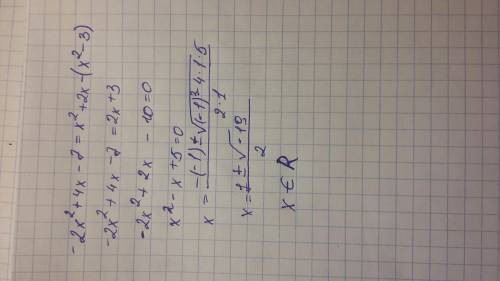 -2x²+4x-7=x²+2x-(x²-3)
-2x²+4x-7=2x+3
-2x²+2x-10=0
x²-x+5=0
x=(-(-1)±√((-1)²4·1·5))/(2·1)
x=(1±√-19)/2
x∈R